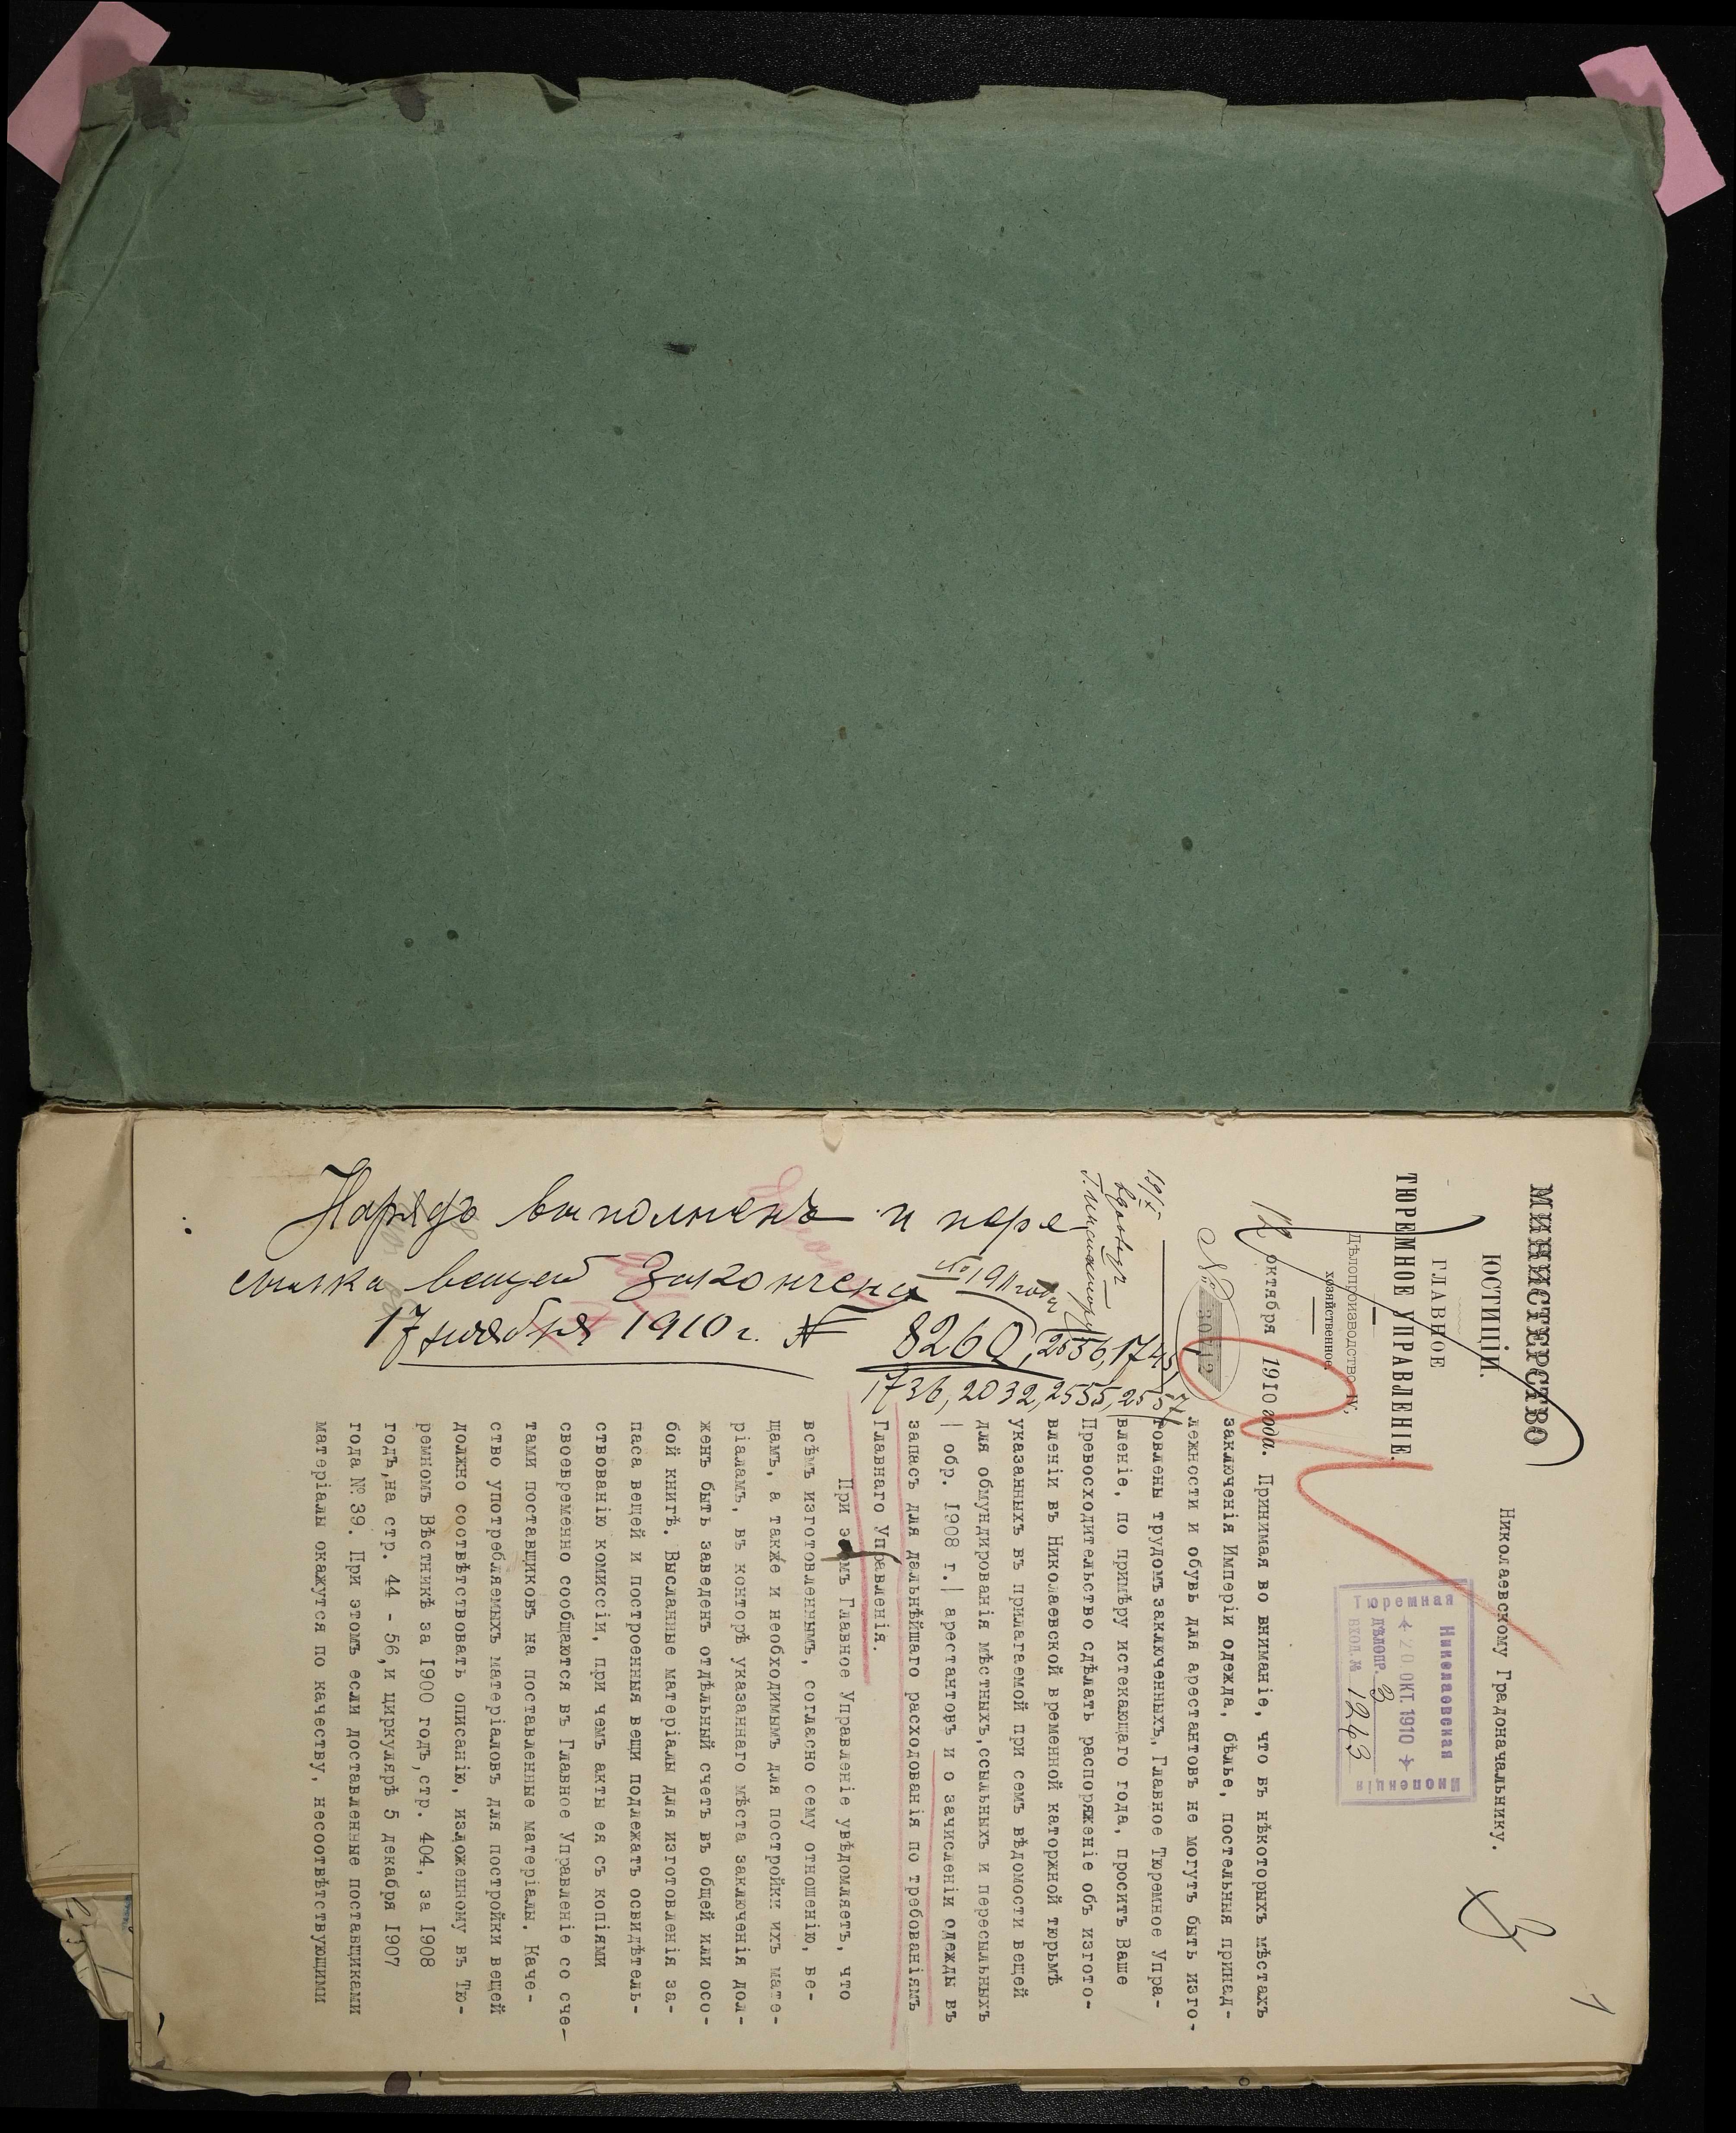 1
МИНИСТЕРСТВО
ЮСТИЦІИ.
ГЛАВНОЕ
ТЮРЕМНОЕ УПРАВЛЕНІЕ.
Дѣлопроизводство IV,
хозяйственное.
12 октября 1910 года.
№ 30712
Николаевскому Градоначальнику.
Николаевская
Тюремная
Инспекція
20 ОКТ. 1910
ДѢЛОПР. 3
ВХОД. № 1243
Принимая во вниманіе, что въ нѣкоторыхъ мѣстахъ
заключенія Имперіи одежда, бѣлье, постельныя принад-
лежности и обувь для арестантовъ не могутъ быть изго-
товлены трудомъ заключенныхъ, Главное Тюремное Упра-
вленіе, по примѣру истекающаго года, проситъ Ваше
Превосходительство сдѣлать распоряженіе объ изгото-
вленіи въ Николаевской временной каторжной тюрьмѣ
указанныхъ въ прилагаемой при семъ вѣдомости вещей
для обмундированія мѣстныхъ,ссыльныхъ и пересыльныхъ
| обр. 1908 г.| арестантовъ и о зачисленіи одежды въ
запасъ для дальнѣйшаго расходованія по требованіямъ
Главнаго Управленія.
При этомъ Главное Управленіе увѣдомляетъ, что
всѣмъ изготовленнымъ, согласно сему отношенію, ве-
щамъ, а также и необходимымъ для постройки ихъ мате-
ріаламъ, въ конторѣ указаннаго мѣста заключенія дол-
женъ быть заведенъ отдѣльный счетъ въ общей или осо-
бой книгѣ. Высланные матеріалы для изготовленія за-
паса вещей и построенныя вещи подлежатъ освидѣтель-
ствованію комиссіи, при чемъ акты ея съ копіями
своевременно сообщаются въ Главное Управленіе со сче-
тами поставщиковъ на поставленные матеріалы. Каче-
ство употребляемыхъ матеріаловъ для постройки вещей
должно соотвѣтствовать описанію, изложенному въ Тю-
ремномъ Вѣстникѣ за 1900 годъ,стр. 404, за 1908
годъ,на стр. 44 - 56,и циркулярѣ 5 декабря 1907
года № 39. При этомъ если доставленные поставщиками
матеріалы окажутся по качеству, несоотвѣтствующими
Нарядъ выполненъ и пере
сылка вещей Закончена
17 ноября 1910 г. № 8260, 2556, 1745,
1736, 2032, 2555, 2557
1911 года
19/X